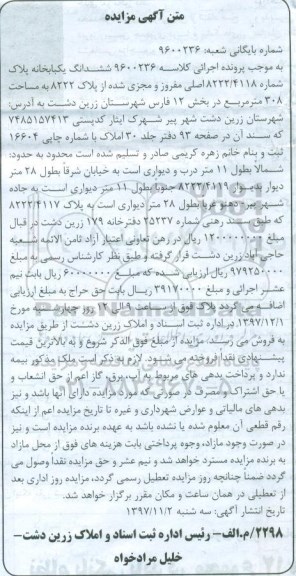 متن آگهی مزایده
شماره بایگانی شعبه: ۹۶۰۰۲۳۶
به موجب پرونده اجرائی کلاسه ۹۶۰۰۲۳۶ ششدانگ یکبابخانه پلاک
شماره ۸۲۲۲/۴۱۱۸ اصلی مفروز و مجزی شده از پلاک ۸۲۲۲ به مساحت
۳۰۸ مترمربع در بخش ۱۲ فارس شهرستان زرین دشت به آدرس:
شهرستان زرین دشت شهر پیر شهرک ایثار کدپستی ۷۴۸۵۱۵۷۴۱۳
که سند آن در صفحه ۹۳ دفتر جلد ۳۰ املاک با شماره چاپی ۱۶۶۰۴
ثبت و بنام خانم زهره کریمی صادر و تسلیم شده است محدود به حدود:
شمالا بطول ۱۱ متر درب و دیواری است به خیابان شرقا بطول ۲۸ متر
دیوار بدیوار ۸۲۲۲/۴۱۱۹ جنوبا بطول ۱۱ متر دیواری است به جاده
شهر پیر- دهنو غربا بطول ۲۸ متر دیواری است به پلاک ۸۲۲۲/۴۱۱۷
که طبق سند رهنی شماره ۲۵۲۳۷ دفترخانه ۱۷۹ زرین دشت در قبال
مبلغ ۱۲۰۰۰۰۰۰۰ ریال در رهن تعاونی اعتبار آزاد ثامن الائمه شعبه
حاجی آباد زرین دشت قرار گرفته و طبق نظر کارشناس رسمی به مبلغ
۹۷۹۲۵۰۰۰۰ ریال ارزیابی شده که مبلغ ۶۰۰۰۰۰۰ ریال بابت نیم
عشر اجرائی و مبلغ ۳۹۱۷۰۰۰۰ ریال بابت حق حراج به مبلغ ارزیابی
اضافه می گردد پلاک فوق از ساعت ۹ الی ۱۲ روز چهار شنبه مورخ
۱۳۹۷/۱۲/۱ در اداره ثبت اسناد و املاک زرین دشت از طریق مزایده
به فروش می رسد. مزایده از مبلغ فوق الذکر شروع و به بالاترین قیمت
پیشنهادی نقدا فروخته می شود. لازم به ذکر است ملک مذکور بیمه
ندارد و پرداخت بدهی های مربوط به آب، برق، گاز اعم از حق انشعاب و
یا حق اشتراک و مصرف در صورتی که مورد مزایده دارای آنها باشد و نیز
بدهی های مالیاتی و عوارض شهرداری و غیره تا تاریخ مزایده اعم از اینکه
رقم قطعی آن معلوم شده یا نشده باشد به عهده برنده مزایده است و نیز
در صورت وجود مازاد، وجوه پرداختی بابت هزینه های فوق از محل مازاد
به برنده مزایده مسترد خواهد شد و نیم عشر و حق مزایده نقدا وصول می
گردد ضمنا چنانچه روز مزایده تعطیل رسمی گردد، مزایده روز اداری بعد
از تعطیلی در همان ساعت و مکان مقرر برگزار خواهد شد.
تاریخ انتشار آگهی: سه شنبه ۱۳۹۷/۱۱/۲
۲۲۹۸/م.الف- رئیس اداره ثبت اسناد و املاک زرین دشت-
خلیل مرادخواه